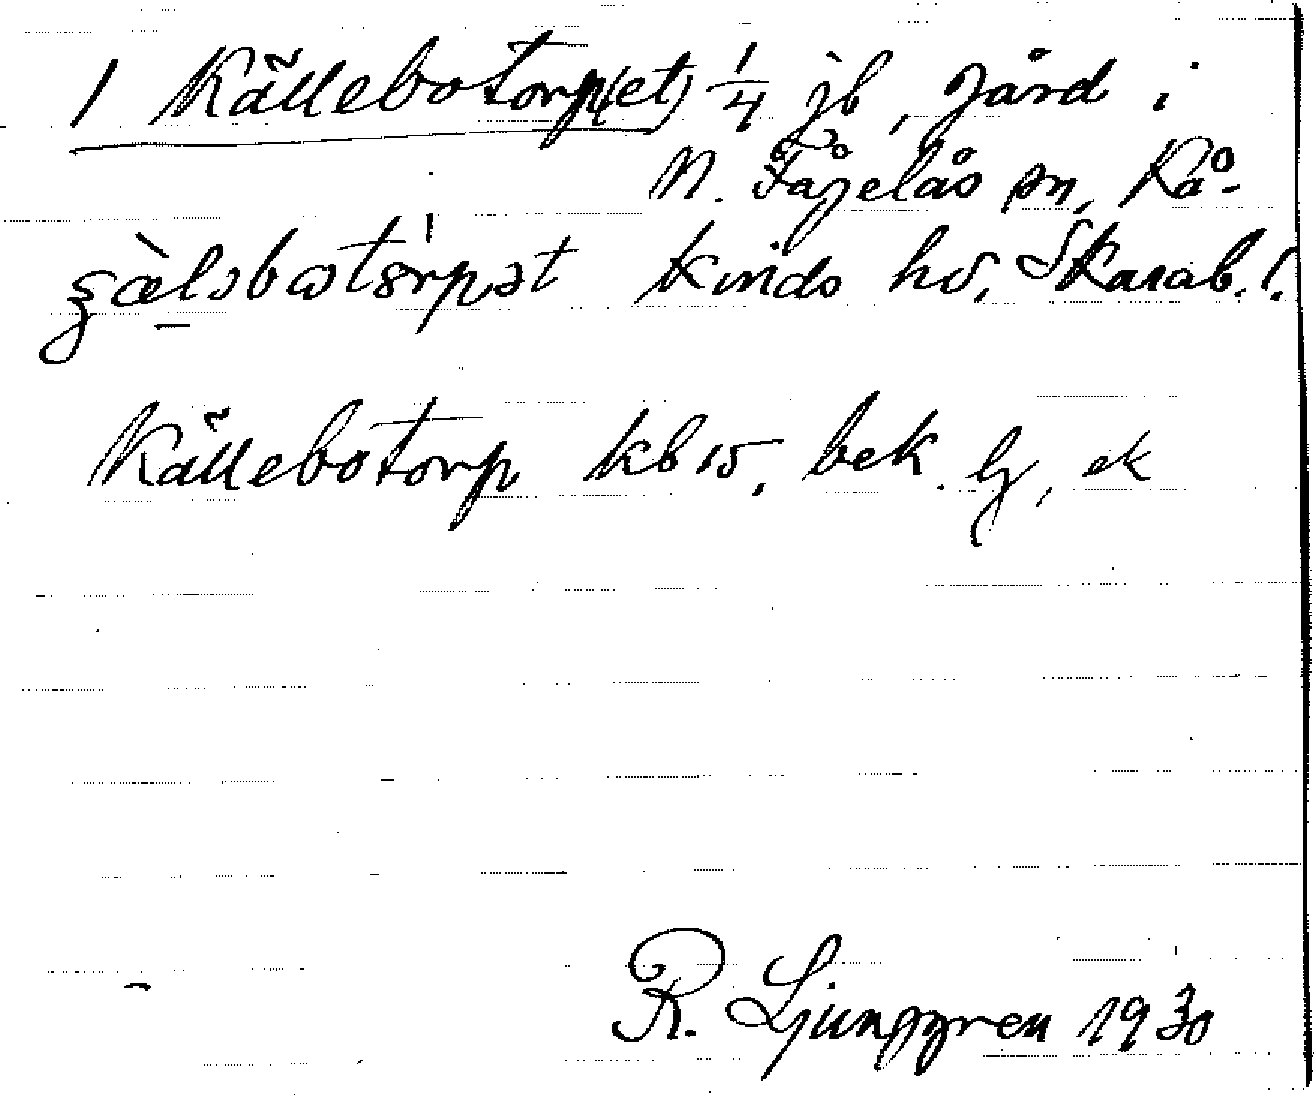 1 Källebotorp(et) 1/4 jb, gård i
N. Fågelås sn, Kå-
kinds hd, Skarab. l.
Källebotorp kb 15, bek. lj, ek
R. Ljunggren 1930